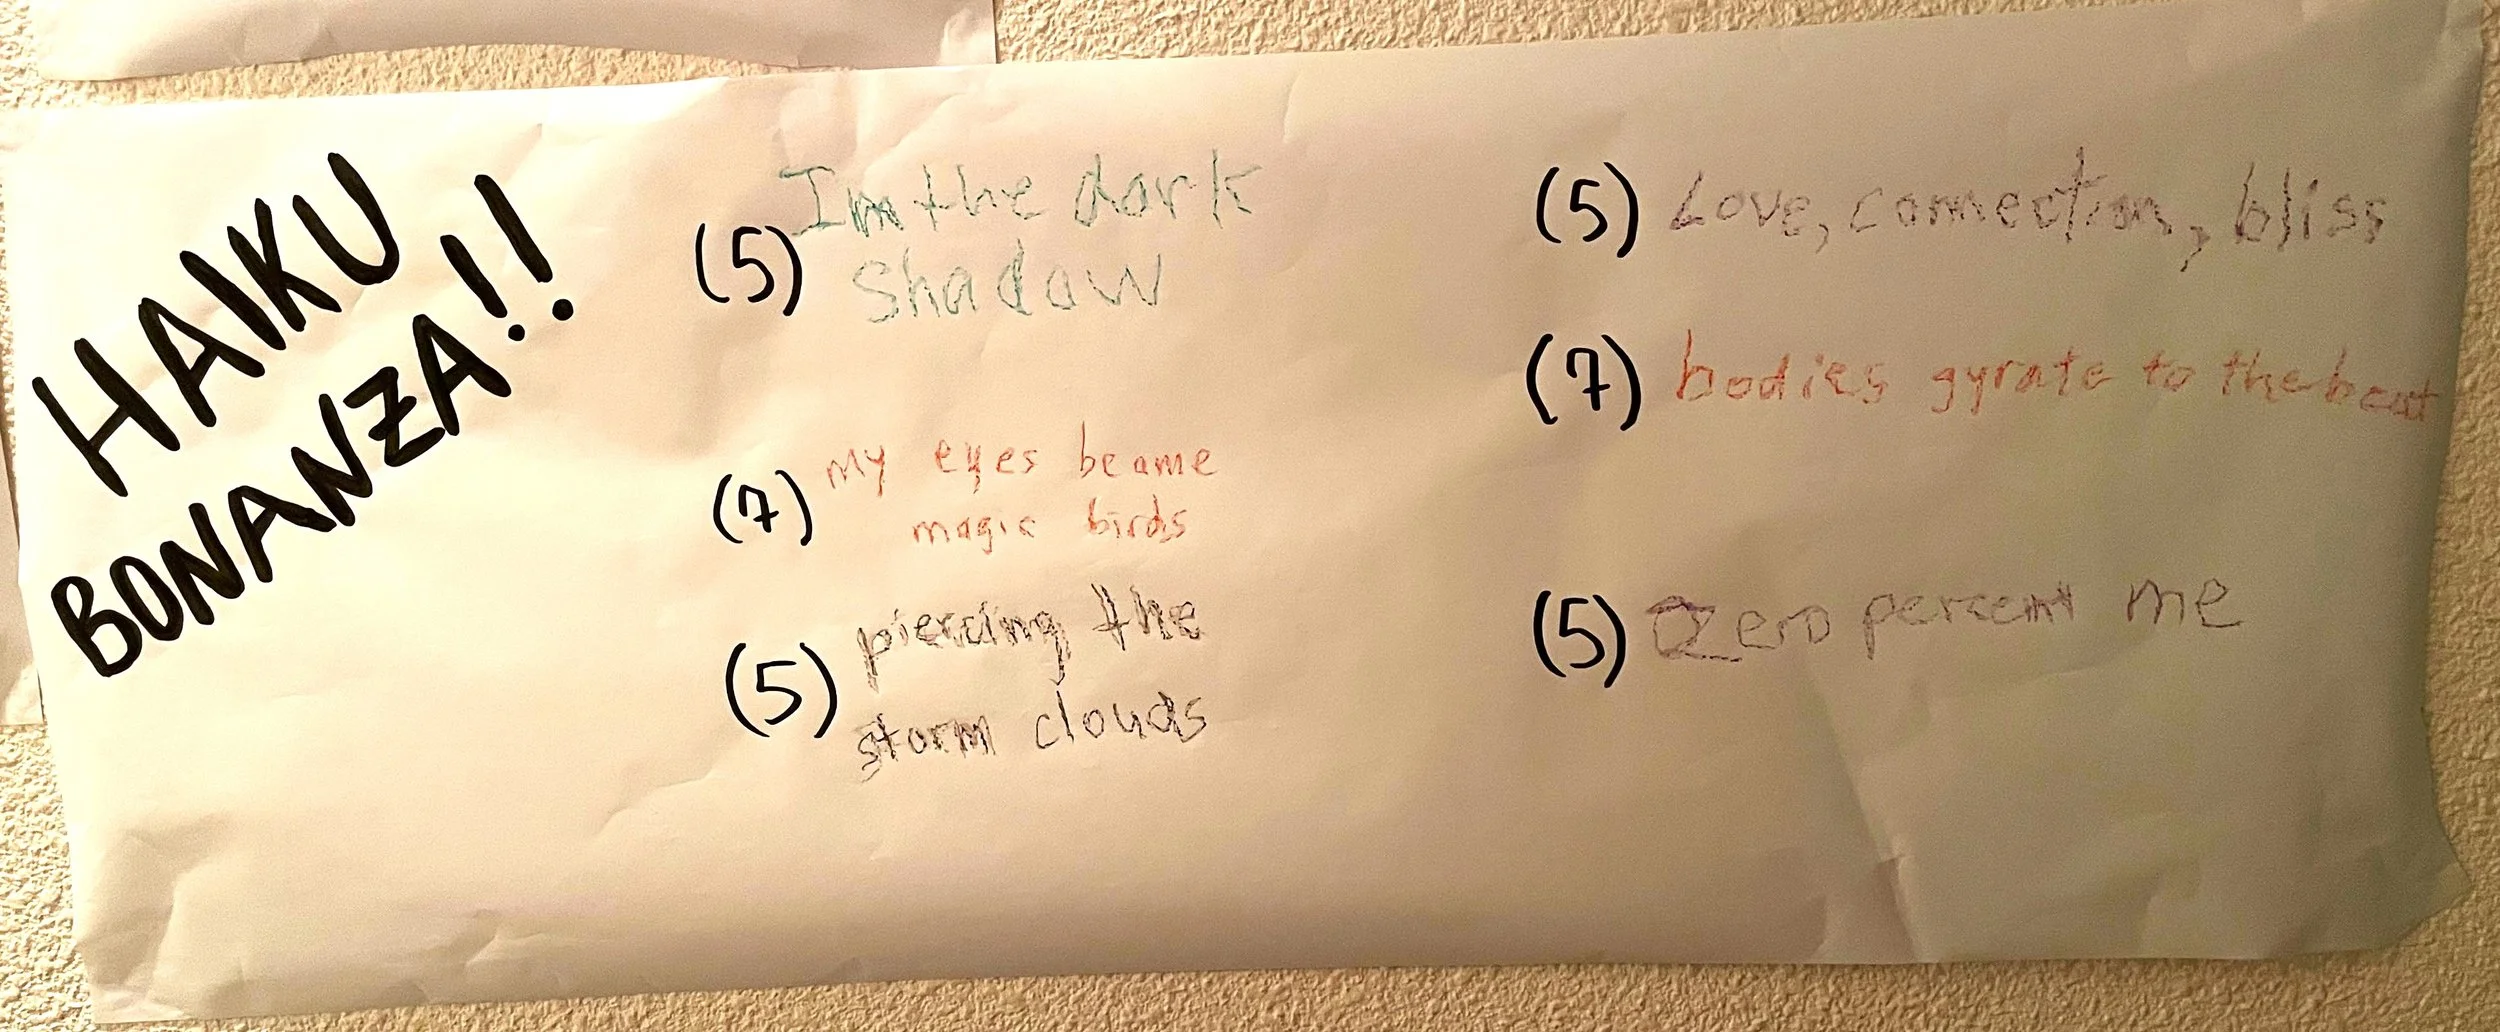 HAIKU
BONANZA!!
(5) Im the dark
shadow
(7) my eyes beame
magic birds
(5) piercing the
storm clouds
(5) Love, connection, bliss
(7) bodies gyrate to the beat
(5) Zero percent me